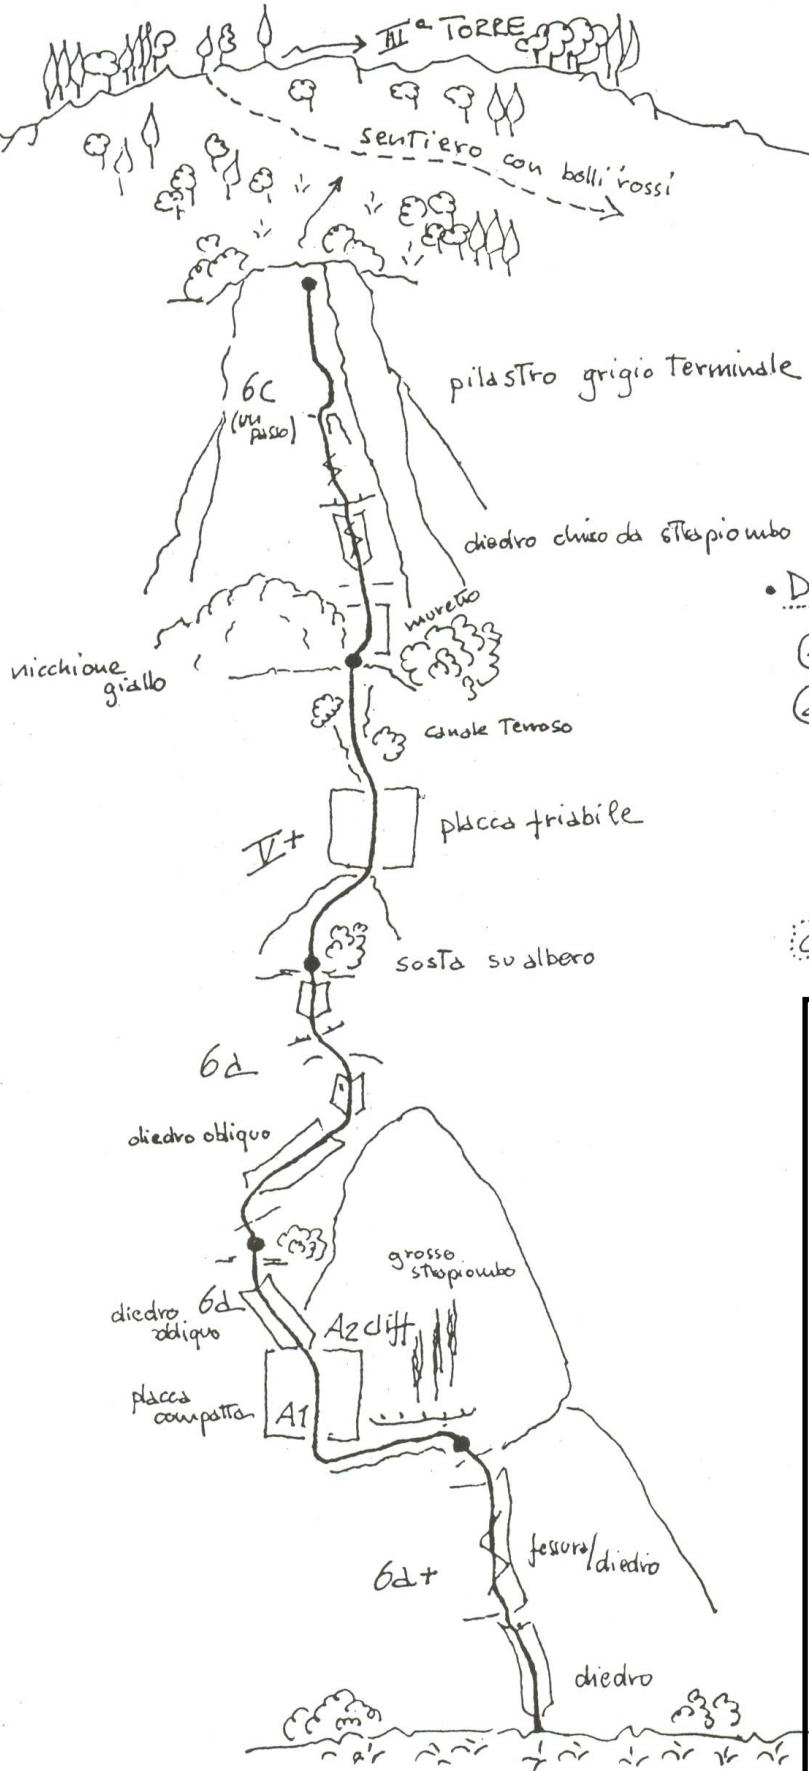 IIIª TORRE
sentiero con bolli rossi
6c
(un
passo)
pilastro grigio terminale
diedro chiuso da strapiombo
• D
muretto
nicchione
giallo
canale terroso
placca friabile
V+
sosta su albero
6a
diedro obliquo
grosso
strapiombo
6a
diedro
obliquo
A2 cliff
placca
compatta
A1
fessura/diedro
6a+
diedro